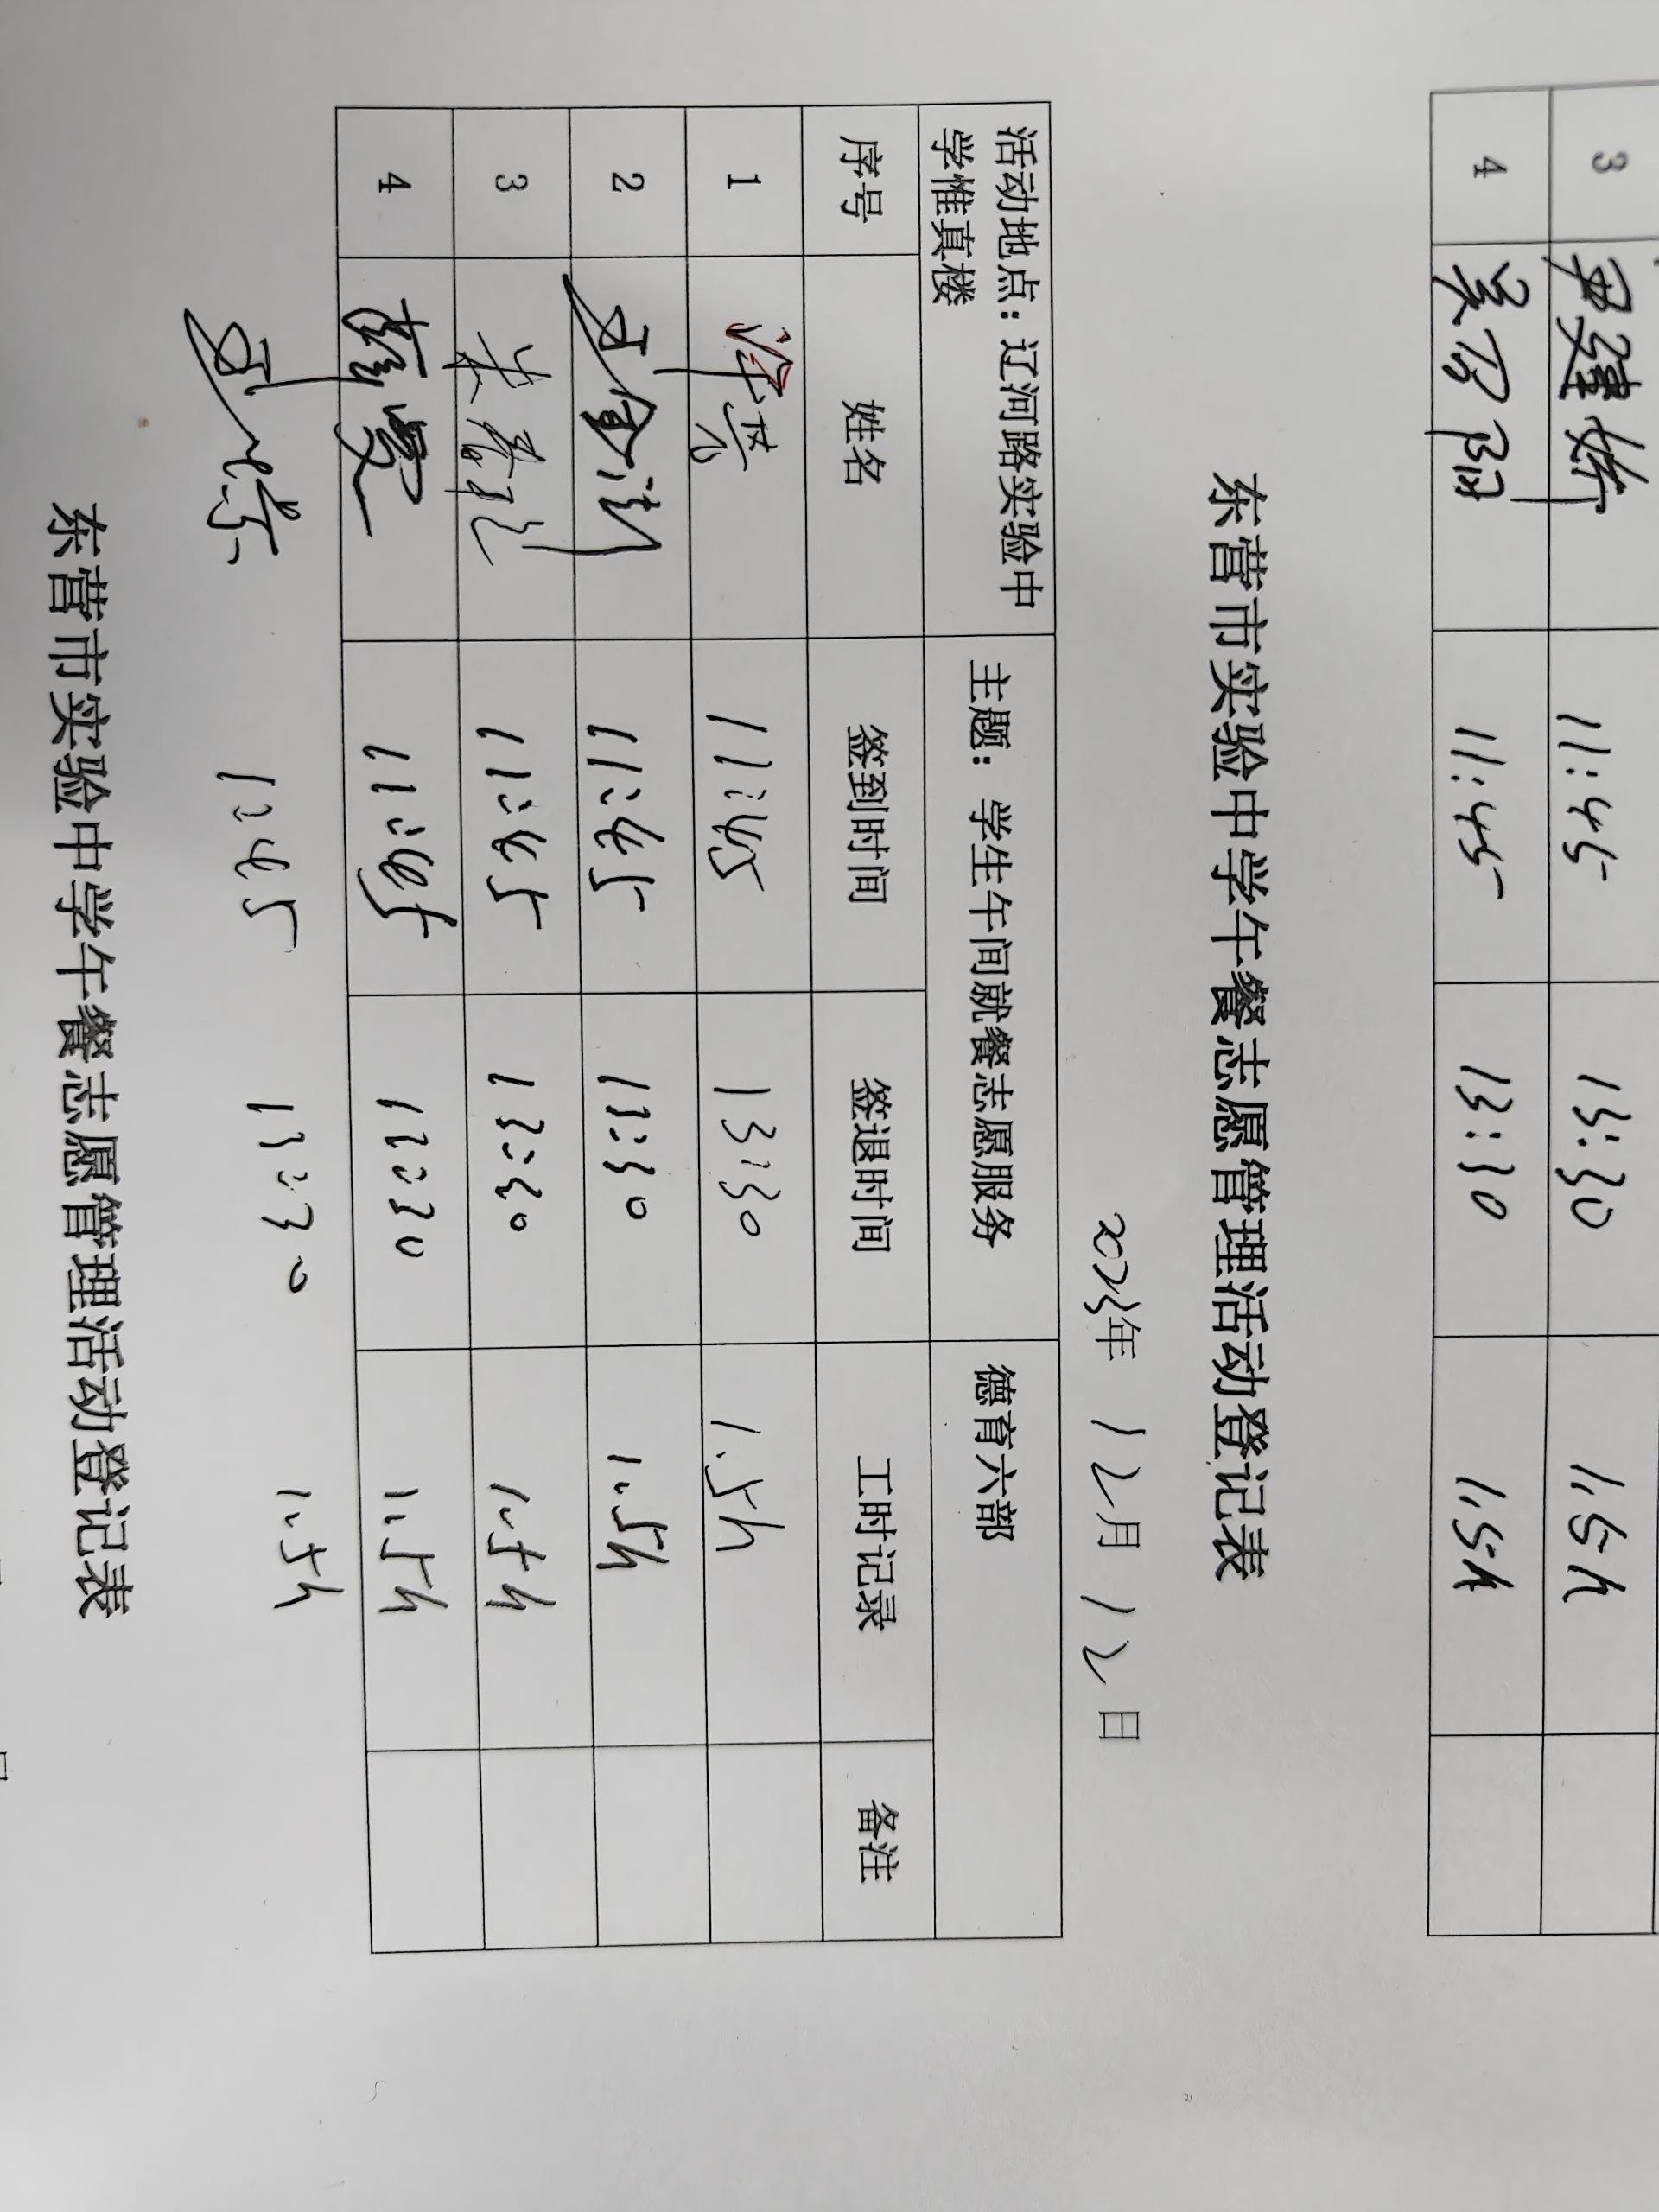 3 尹建娇 11:45 13:30 1.5h
4 11:45 13:30 1.5h
东营市实验中学午餐志愿管理活动登记表
2023年 12月 12日
活动地点：辽河路实验中 主题：学生午间就餐志愿服务 德育六部
学惟真楼
序号 姓名 签到时间 签退时间 工时记录 备注
1 11:45 13:30 1.5h
2 11:45 13:30 1.5h
3 11:45 13:30 1.5h
4 11:45 13:30 1.5h
11:45 13:30 1.5h
东营市实验中学午餐志愿管理活动登记表